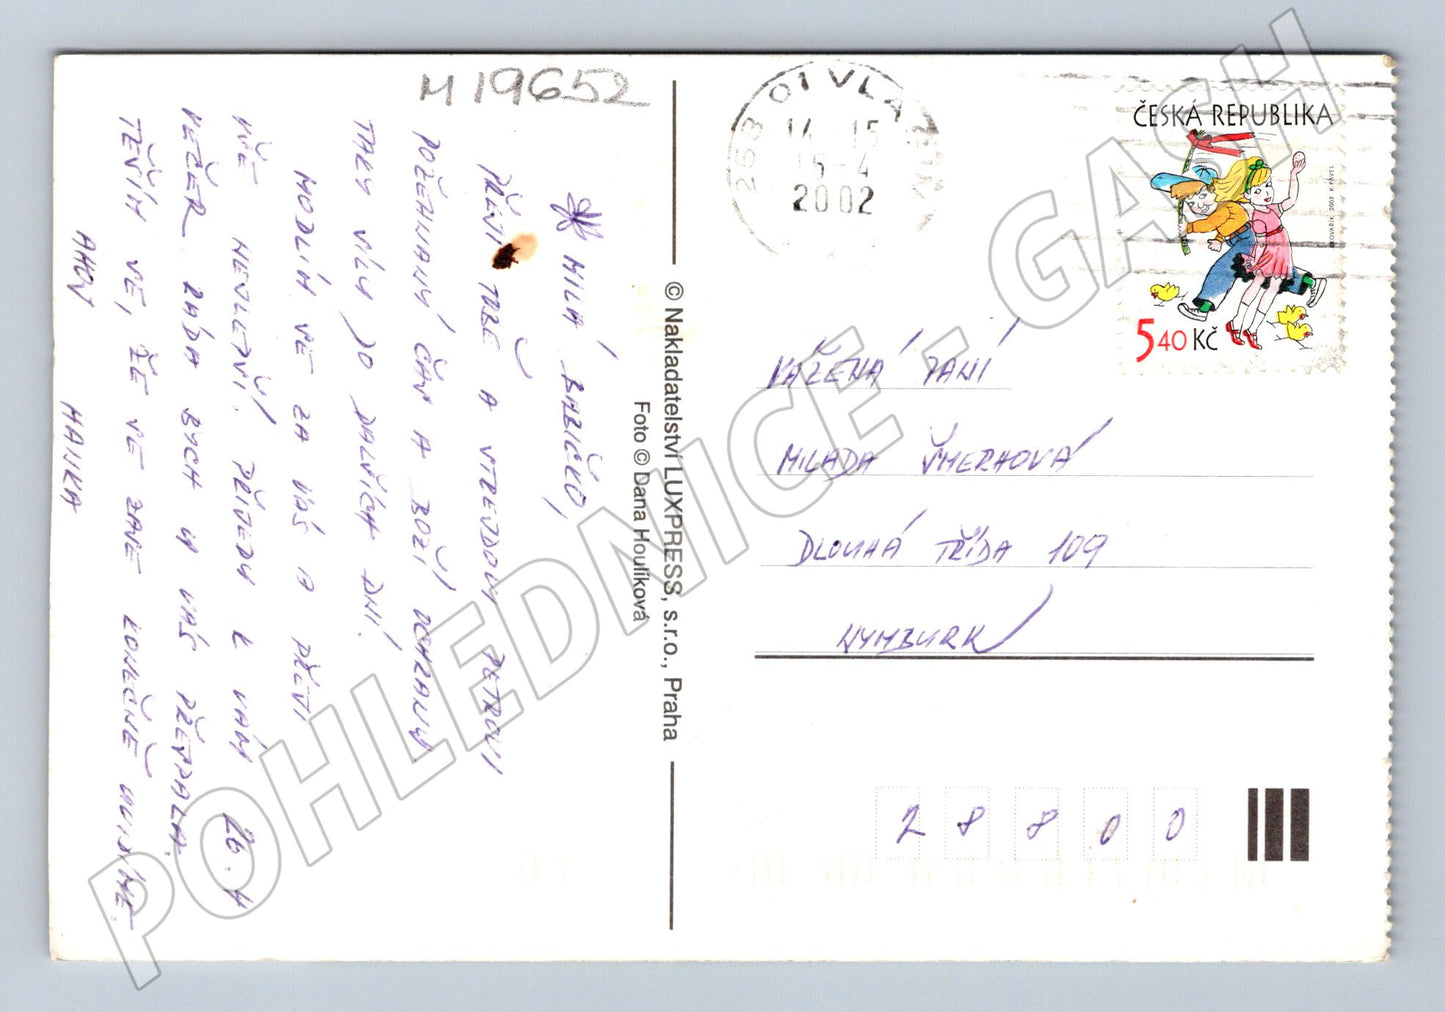 M 19652
MILÁ BABIČKO,
PŘEJI TOBĚ A STREJDOVI PETROVI
POŽEHNANÝ ČAS A BOŽÍ OCHRANU
TAKY SÍLU DO DALŠÍCH DNÍ.
MODLÍM SE ZA VÁS A PŘEJI
VŠE NEJLEPŠÍ. PŘIJEDU K VÁM 26.4
VEČER. RÁDA BYCH U VÁS PŘESPALA.
TĚŠÍM SE, ŽE SE ZASE KONEČNĚ UVIDÍME.
AHOJ HANKA
© Nakladatelství LUXPRESS, s.r.o., Praha
Foto © Dana Houlíková
258 01 VLAŠIM
14-15
15-4
2002
ČESKÁ REPUBLIKA
5,40 Kč
VÁŽENÁ PANÍ
MILADA ŠMERHOVÁ
DLOUHÁ TŘÍDA 109
NYMBURK
28800
POHLEDNICE - GASH